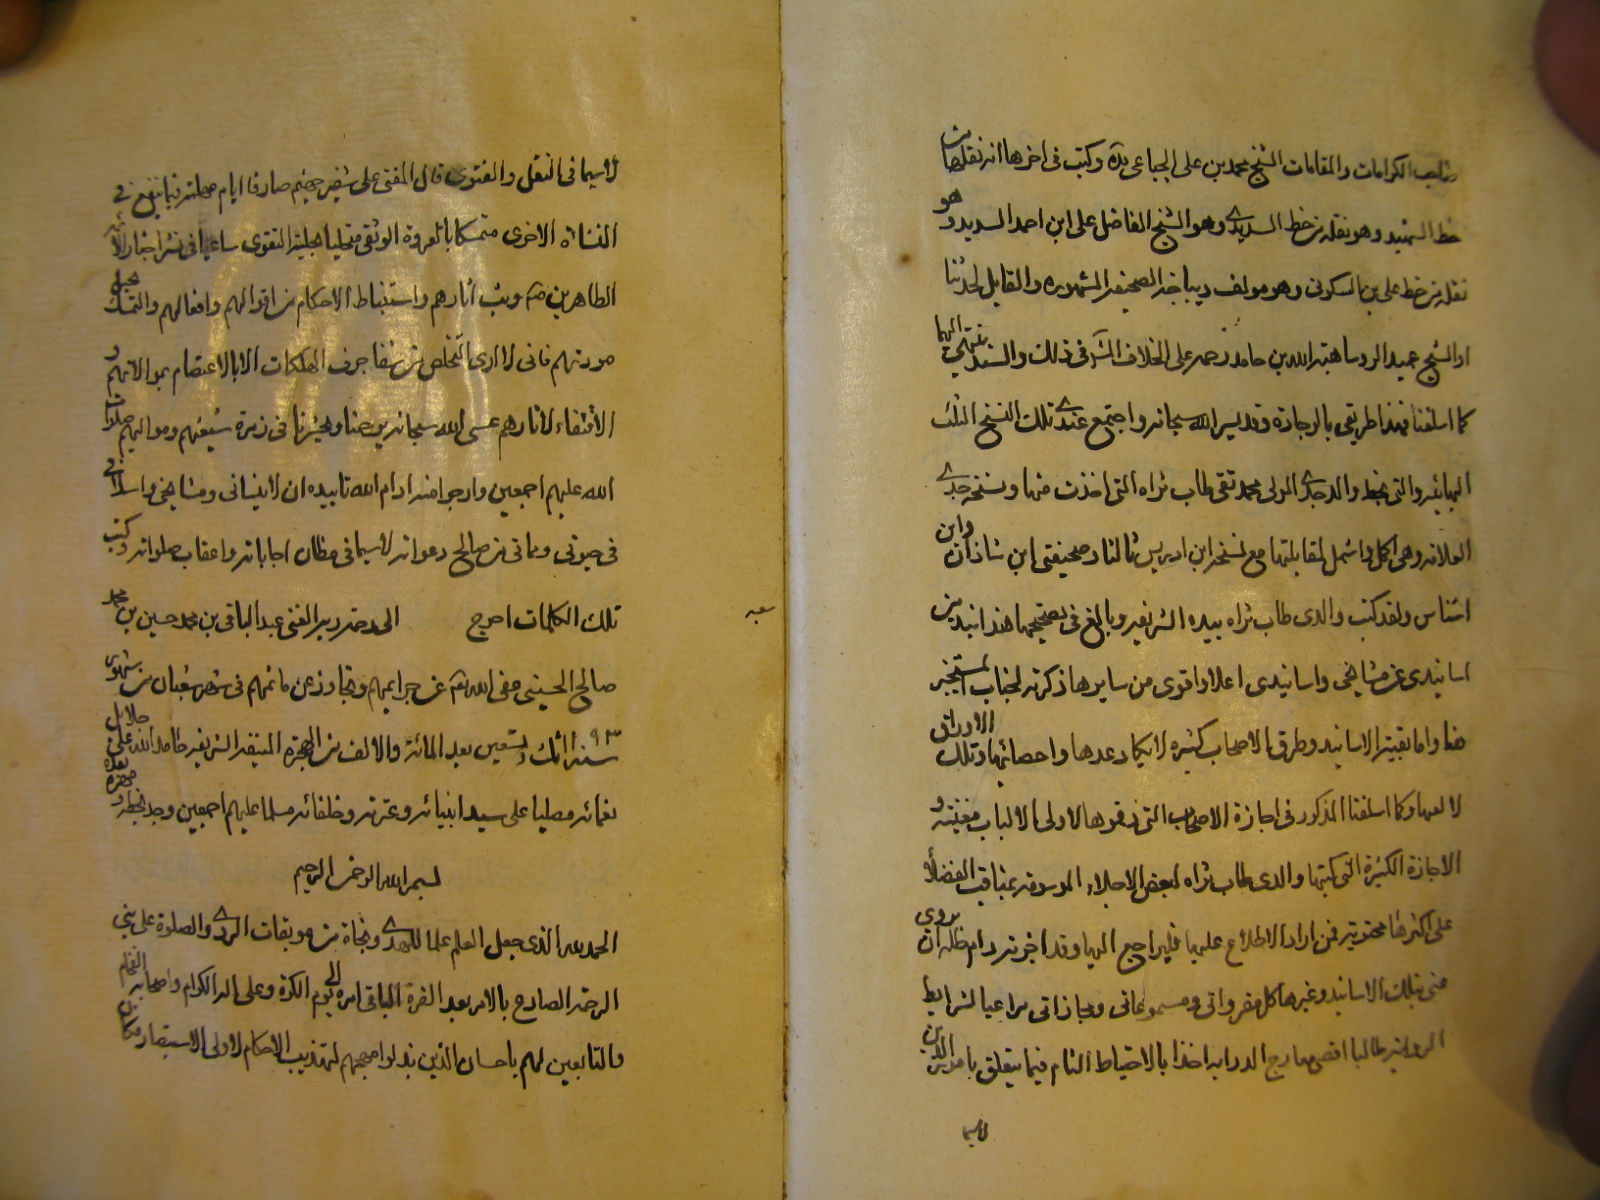 صاحب الكرامات والمقامات الشيخ محمد بن علي الجباعي بيده وكتب في اخرها انه نقلها من
خط الشهيد وهو نقله من خط السديدي وهو الشيخ الفاضل علي ابن احمد السديد وهو
نقله من خط علي بن السكون وهو مولف ديباجة الصحيفة المشهوره والقايل لحدثنا
او الشيخ عميد الروسا هبة الله بن حامد رحمه على الخلاف في ذلك والسند ينتهي اليهما
كما اسلفنا فهذا طريقي بالوجادة وقد يسر الله سبحانه واجتمع عندي تلك النسخ الثلث
البهائيه والتي بخط والد جدي المولى محمد تقي طاب ثراه التي اخذت منها ونسخة جدي
العلامه وهي اكمل واشمل لمقابلتها مع نسخة ابن ادريس ثالثا وصحيفتي ابن شاذان وابن
اشناس ولقد كتب والدي طاب ثراه بيده الشريفه وبالغ في تصحيحها هذا نبذ من
اسانيدي عن مشايخي واسانيدي اعلا واقوى من سايرها ذكرته لجناب المستجيز
هنا واما بقية الاسانيد وطرق الاصحاب كثيره لا يكاد عدها واحصائها وتلك الاوراق
لا تعها وكما اسلفنا المذكور في اجازة الاصحاب التي نمقوها لاولى الالباب مغنيه و
الاجازة الكبيرة التي كتبها والدي طاب ثراه لبعض الاجلاء الموسومه بمناقب الفضلاء
على اكثرها محتويه فمن اراد الاطلاع عليها فليراجع اليها وقد اجزته دام ظله ان يروي
عني بتلك الاسانيد وغيرها كل مقرواتي ومسموعاتي ومجازاتي مراعيا لشرايط
الروايه طالبا اقصى معارج الدرايه اخذا بالاحتياط التام فيما يتعلق بامور الدين
لاسيما
لاسيما في النقل والفتوى فان المفتي على شفير جهنم صارفا ايام مهلته فيما ينفع في
النشاه الاخرى متمسكا بالعروة الوثقى متحليا بحلية التقوى ساعيا في نشر اخبار الائمه
الطاهرين وبث اثارهم واستنباط الاحكام من اقوالهم وافعالهم والتمسك بحبل
مودتهم فاني لا ارى التخلص من شفا جرف الهلكات الا بالاعتصام بموالاتهم و
الاقتفاء لاثارهم عسى الله سبحانه يرحمنا ويحشرنا في زمرة شيعتهم ومواليهم صلوات
الله عليهم اجمعين وارجو امنه ادام الله تاييده ان لا ينساني ومشايخي واسلافي
في حيوتي ومماتي من صالح دعواته لاسيما في مظان اجاباته واعقاب صلواته وكتب
تلك الكلمات احوج الى رحمة ربه الغني عبد الباقي بن محمد حسين بن محمد
صالح الحسيني عفى الله عن جرايمهم وتجاوز عن ماثمهم في شهر شعبان من شهور
سنه ثلث وتسعين بعد المائة والالف من الهجرة الشريفه حامدا لله على جلائل
نعمائه مصليا على سيد انبيائه وعترته وخلفائه مسلما عليهم اجمعين وجد بخطه و
بسم الله الرحمن الرحيم
الحمد لله الذي جعل العلم علما للهدى ونجاة من موبقات الردى والصلوة على نبي
الرحمة الصادع بالامر بعد الفترة الباقي امره الى يوم الكرة وعلى اله الكرام واصحابه
والتابعين لهم باحسان الذين بذلوا مهجهم لتهذيب الاحكام لاولى الاستبصار